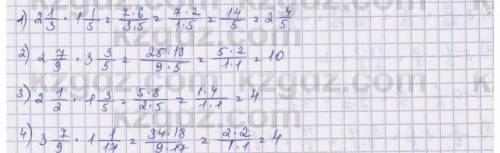 1) 2 1/3 · 1 1/5 = 7·6/3·5 = 7·2/1·5 = 14/5 = 2 4/5
2) 2 7/9 · 3 3/5 = 25·18/9·5 = 5·2/1·1 = 10
3) 2 1/2 · 1 3/5 = 5·8/2·5 = 1·4/1·1 = 4
4) 3 7/9 · 1 1/17 = 34·18/9·17 = 2·2/1·1 = 4
kzgdz.kz